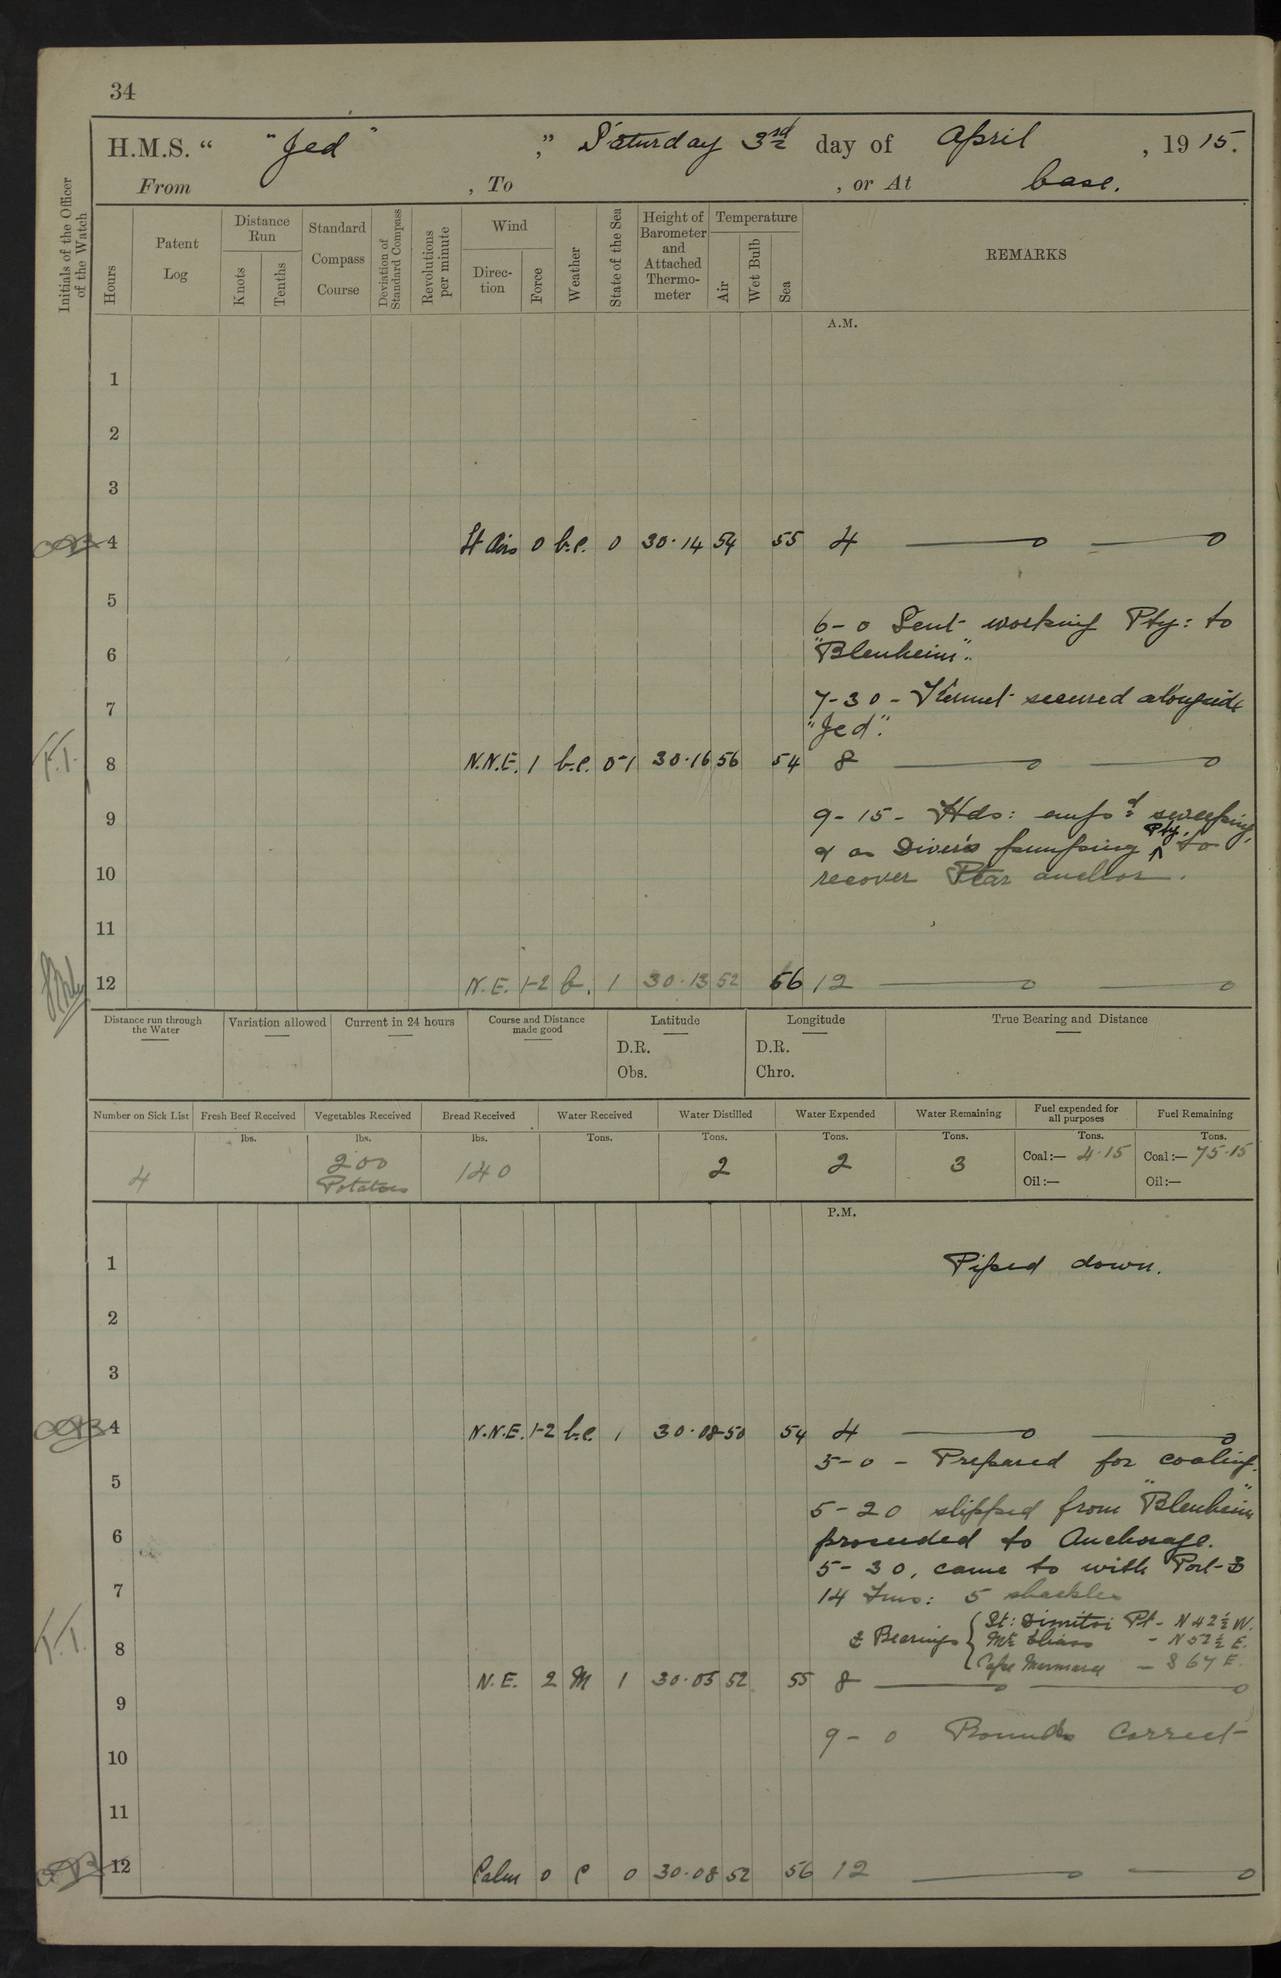 34
H.M.S. “ "Jed" ,” Saturday 3rd day of April , 1915.
From , To , or At base.
Initials of the Officer of the Watch
Hours
Patent Log
Distance Run
Knots Tenths
Standard Compass Course
Deviation of Standard Compass
Revolutions per minute
Wind
Direction Force
Weather
State of the Sea
Height of Barometer and Attached Thermometer
Temperature
Air Wet Bulb Sea
REMARKS
A.M.
1
2
3
4 Lt Airs 0 b.c. 0 30.14 54 55 4
5
6-0 Sent working Pty: to
6 "Blenheim".
7-30 - Kennet secured alongside
7 "Jed".
F.T. 8 N.N.E. 1 b.c. 0-1 30.16 56 54 8
9 9-15 - Hds: empd: sweeping,
& as Divers pumping Pty. to
10 recover Star anchor.
11
12 N.E. 1-2 b. 1 30.13 52 56 12
Distance run through the Water
Variation allowed
Current in 24 hours
Course and Distance made good
Latitude
D.R.
Obs.
Longitude
D.R.
Chro.
True Bearing and Distance
Number on Sick List Fresh Beef Received Vegetables Received Bread Received Water Received Water Distilled Water Expended Water Remaining Fuel expended for all purposes Fuel Remaining
lbs. lbs. lbs. Tons. Tons. Tons. Tons. Tons. Tons.
4 200 Potatoes 140 2 2 3 Coal:— 4.15 Coal:— 75.15
Oil:— Oil:—
P.M.
1 Piped down.
2
3
4 N.N.E. 1-2 b.c. 1 30.08 50 54 4
5-0 - Prepared for coaling.
5
5-20 slipped from "Blenheim"
6 proceeded to Anchorage.
5-30, came to with Port
7 14 Fms: 5 shackles
Bearings { St: Dimitri Pt - N 42½ W.
8 Mt. Elias - N 52½ E.
Cape Marmara - S 67 E.
T.T.
N.E. 2 M 1 30.05 52 55 8
9
9-0 Rounds Correct
10
11
12 Calm 0 c 0 30.08 52 56 12